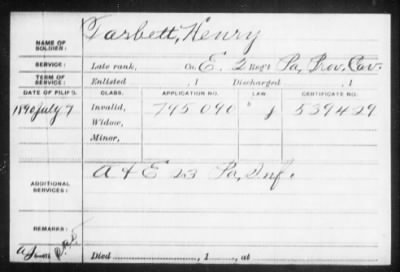 NAME OF SOLDIER: Tarbett, Henry
SERVICE: Late rank, Co. E, 2 Reg't Pa, Prov. Cav.
TERM OF SERVICE: Enlisted , 1 Discharged , 1
DATE OF FILING. CLASS. APPLICATION NO. LAW. CERTIFICATE NO.
1890 July 7 Invalid, 795 090 J 539429
Widow,
Minor,
ADDITIONAL SERVICES: A & E 23 Pa, Inf.
REMARKS:
Died , 1 , at